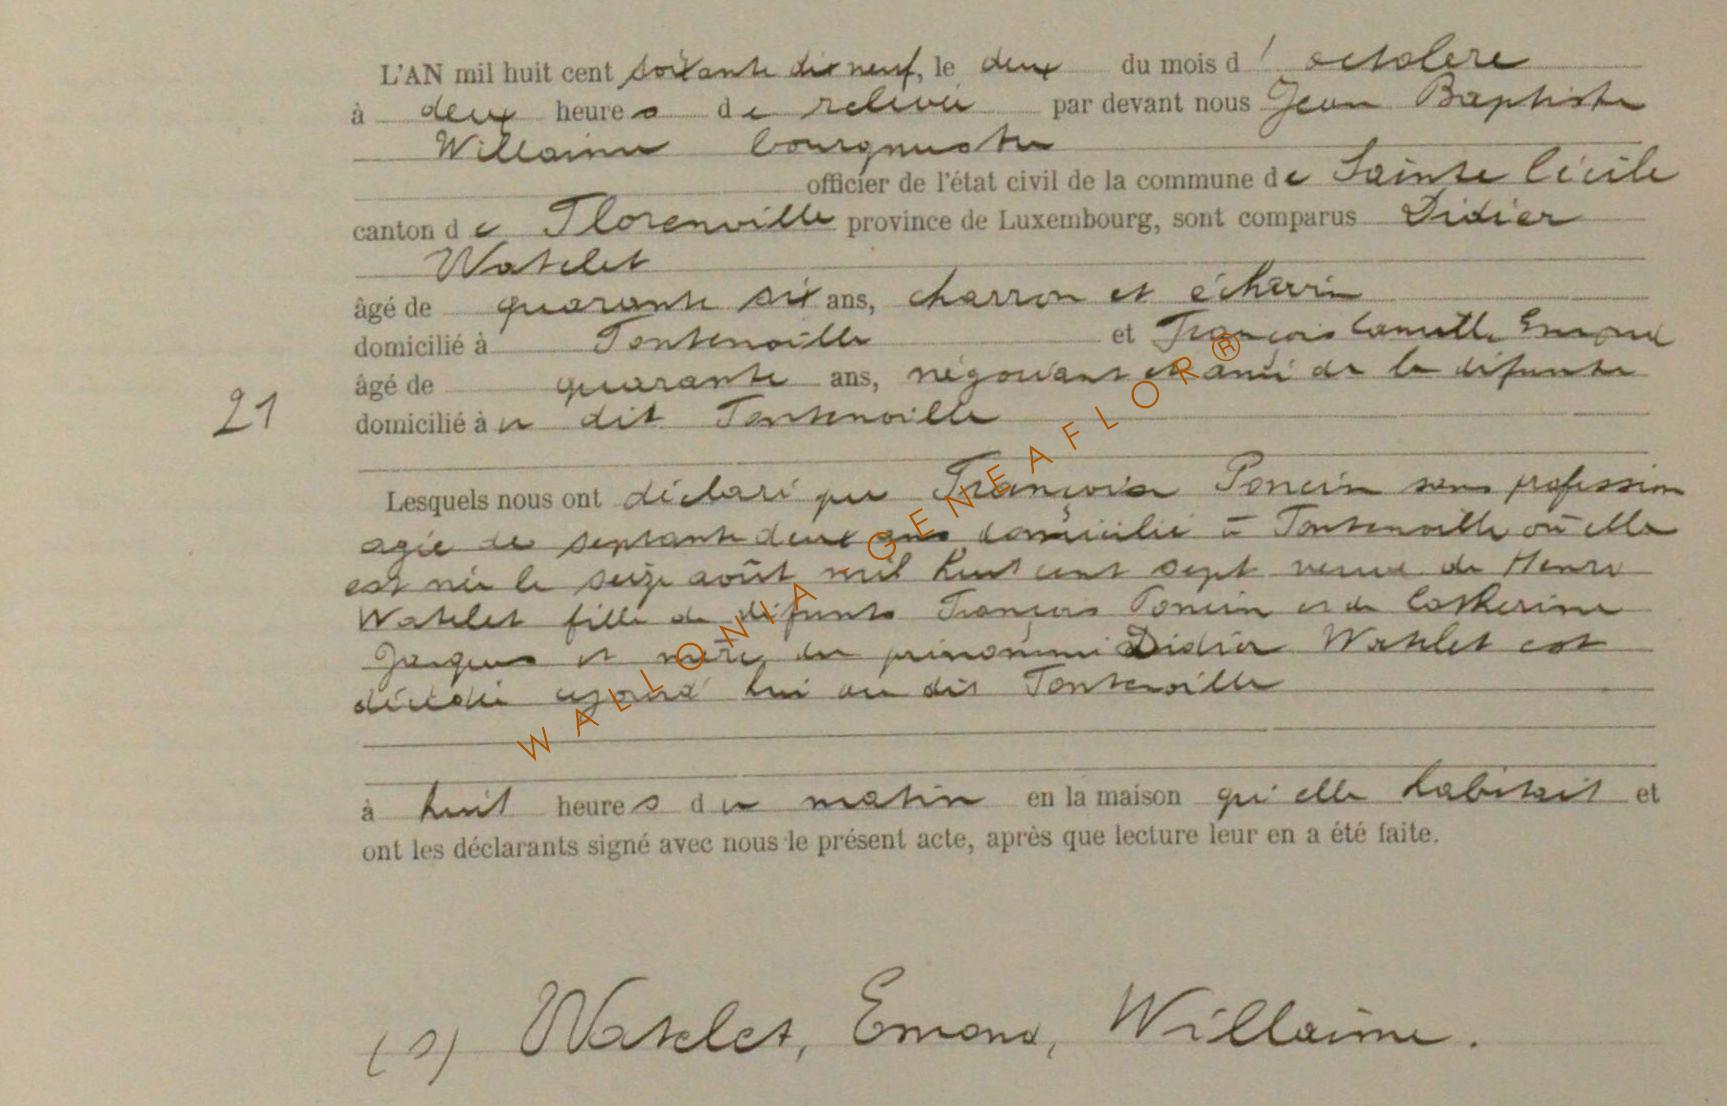 L'AN mil huit cent soixante dix neuf, le deux du mois d' octobre
à deux heures de relevée par devant nous Jean Baptiste
Willaime bourgmestre
officier de l'état civil de la commune de Sainte Cécile
canton de Florenville province de Luxembourg, sont comparus Didier
Watelet
âgé de quarante six ans, charron et échevin
domicilié à Fontenoille et François Camille Emond
âgé de quarante ans, négociant et ami de la défunte
domicilié à u dit Fontenoille
21
Lesquels nous ont déclaré que Françoise Poncin sans profession
agée de septante deux ans domicilié à Fontenoille où elle
est née le seize août mil huit cent sept veuve de Henri
Watelet fille de défunts François Poncin et de Catherine
Jacques et mère du prénommé Didier Watelet est
décédée aujourd'hui au dit Fontenoille
à huit heures du matin en la maison qu'elle habitait et
ont les déclarants signé avec nous le présent acte, après que lecture leur en a été faite.
(s) Watelet, Emond, Willaime.
WALLONIA - GENEAFLOR®